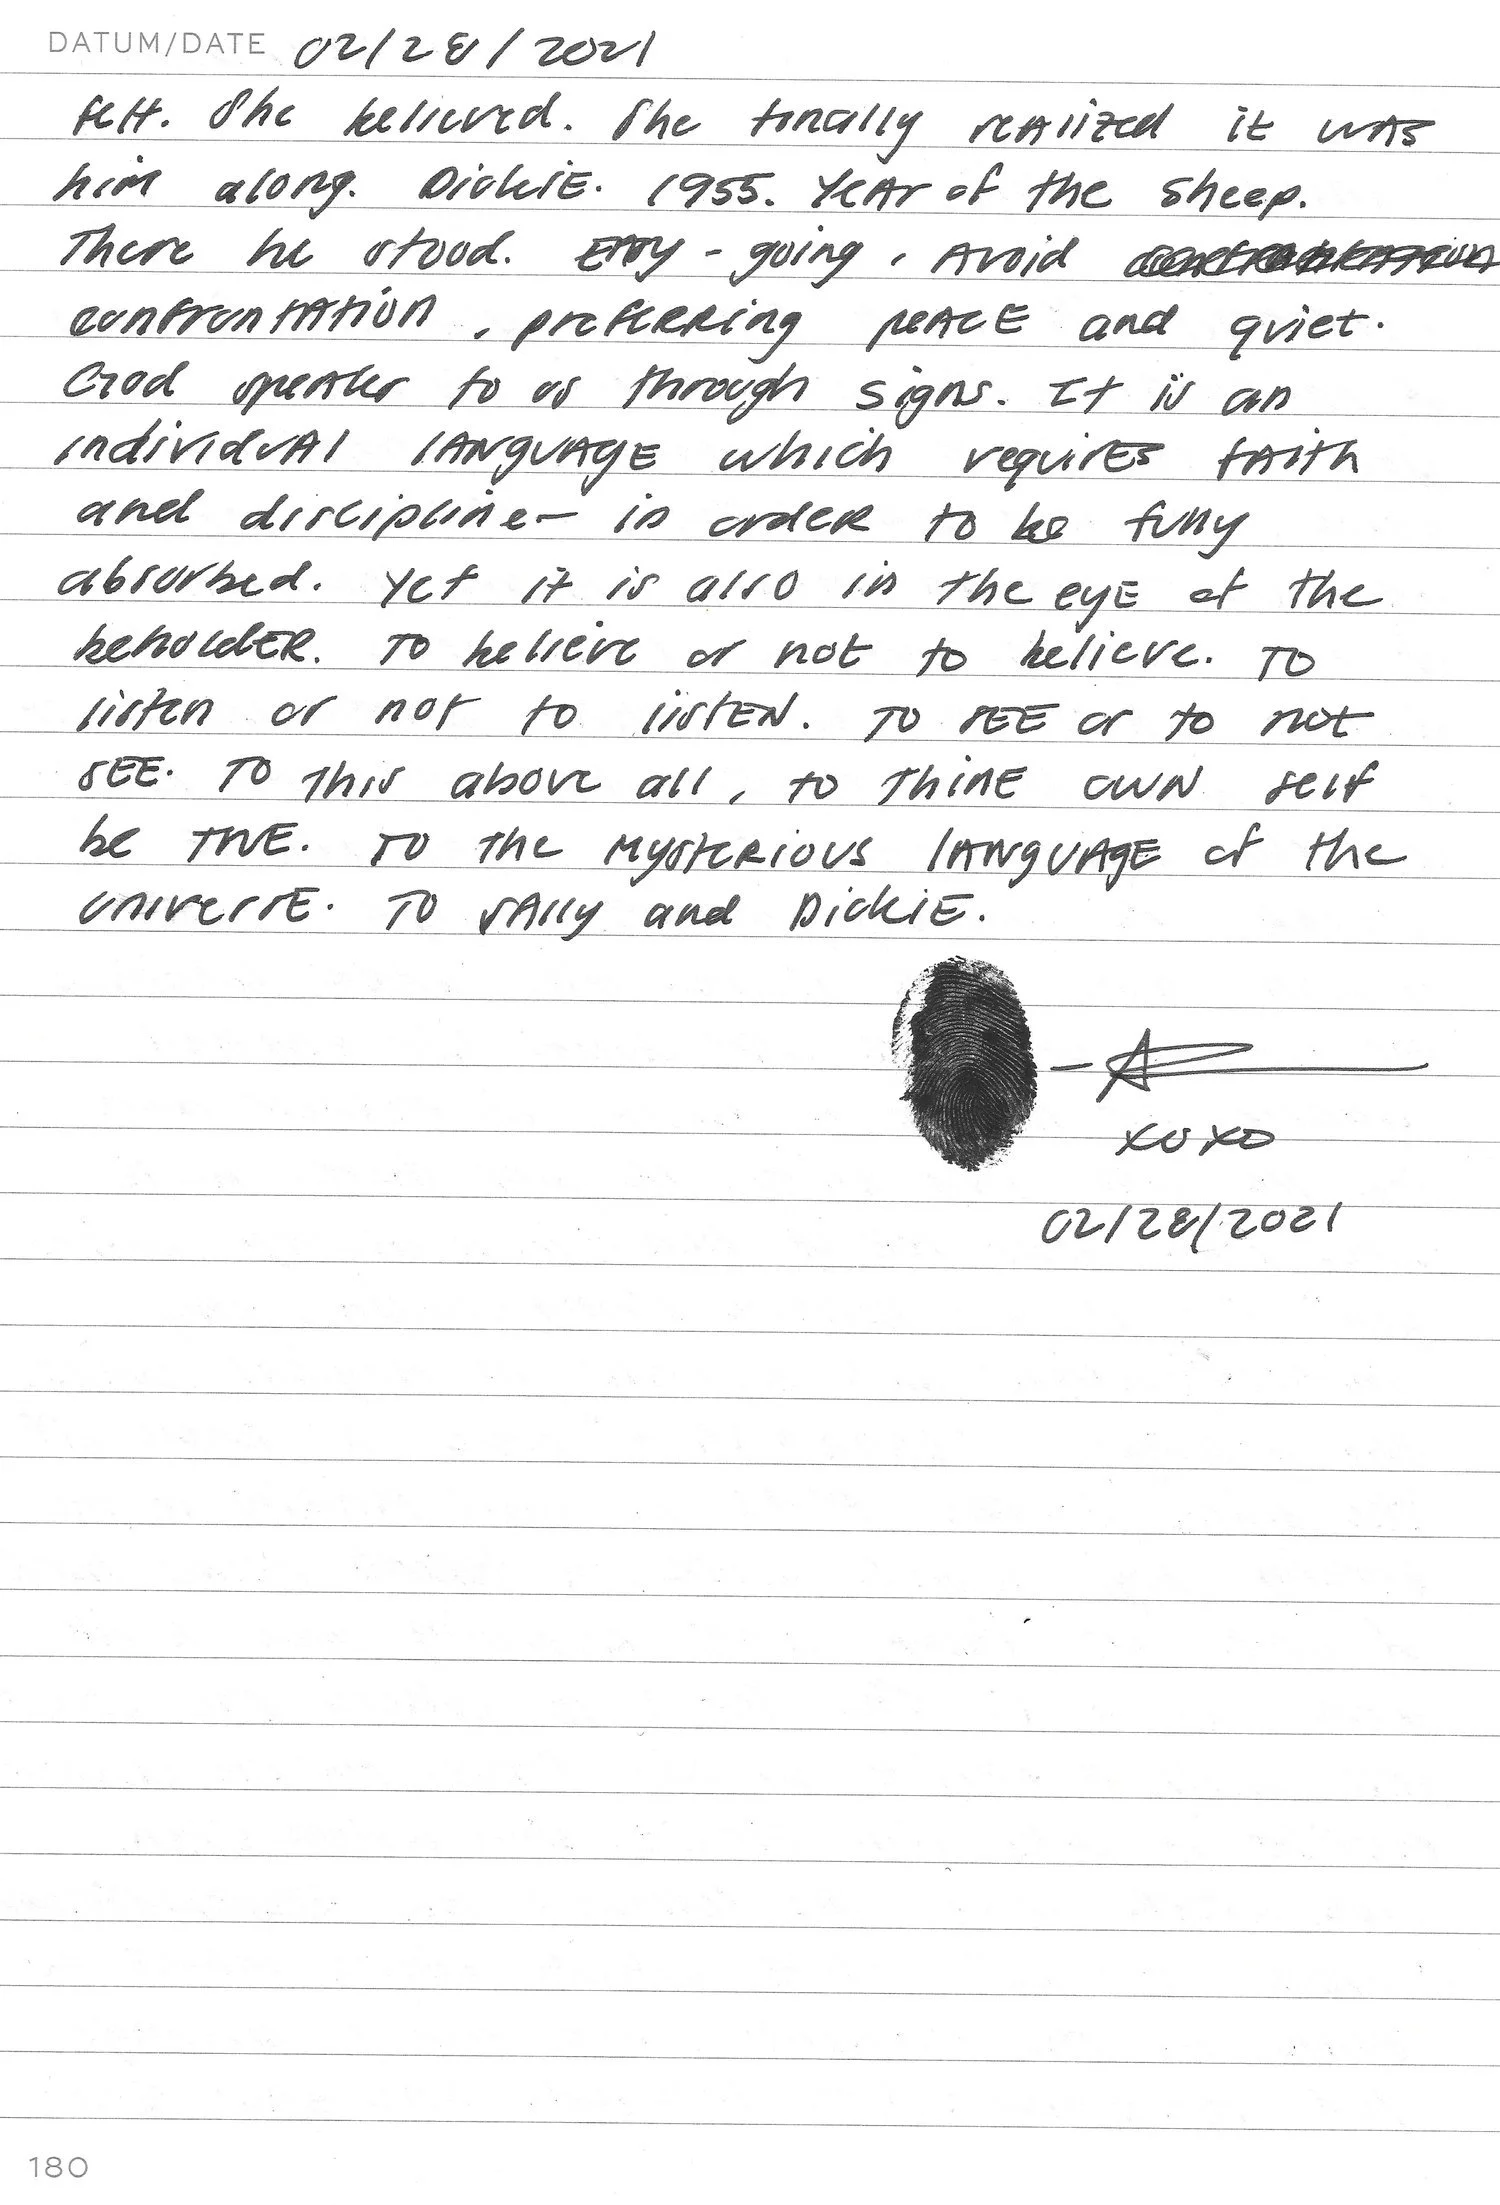 DATUM/DATE 02/28/2021
felt. She believed. She finally realized it was
him along. Dickie. 1955. Year of the sheep.
There he stood. Easy-going, Avoid
confrontation, preferring peace and quiet.
God speaks to us through signs. It is an
individual language which requires faith
and discipline - in order to be fully
absorbed. Yet it is also in the eye of the
beholder. To believe or not to believe. To
listen or not to listen. To see or to not
see. To this above all, to thine own self
be true. To the mysterious language of the
universe. To Sally and Dickie.
xoxo
02/28/2021
180